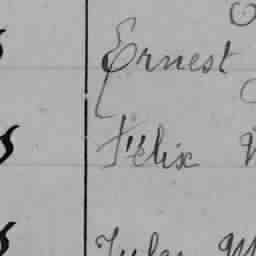 Ernest
Félix
Jules M